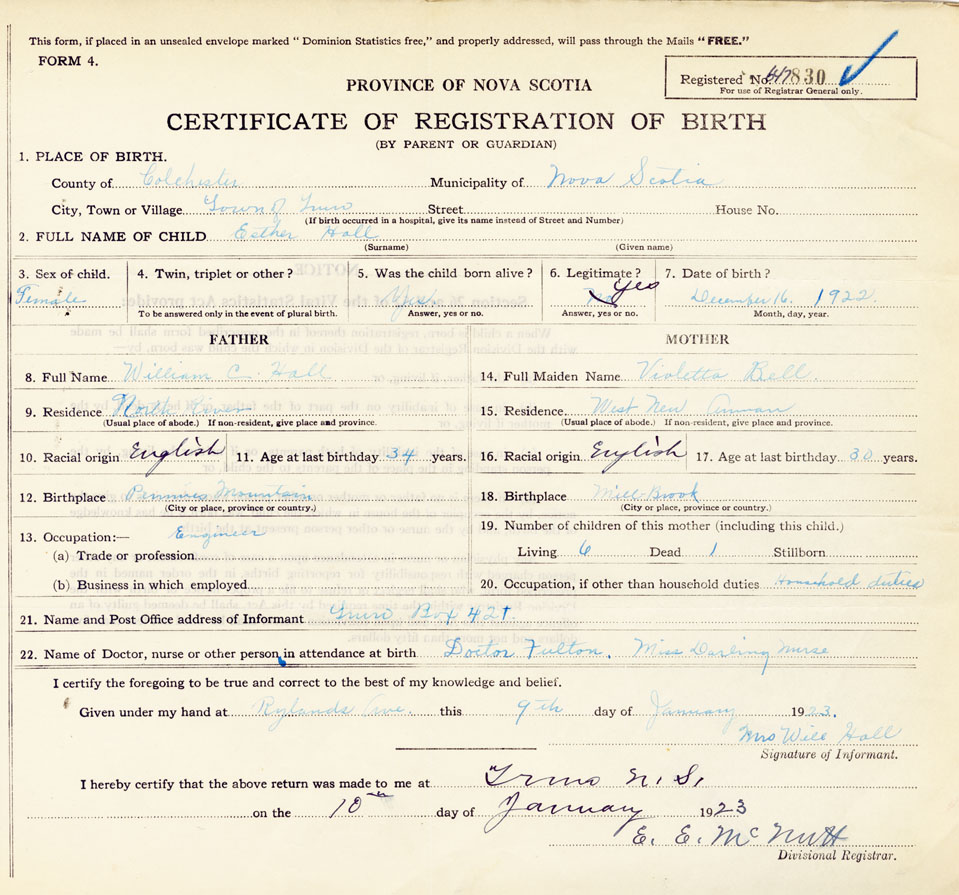 This form, if placed in an unsealed envelope marked "Dominion Statistics free," and properly addressed, will pass through the Mails "FREE."
FORM 4.
Registered No. 830
For use of Registrar General only.
PROVINCE OF NOVA SCOTIA
CERTIFICATE OF REGISTRATION OF BIRTH
(BY PARENT OR GUARDIAN)
1. PLACE OF BIRTH.
County of Colchester Municipality of Nova Scotia
City, Town or Village Town of Truro Street House No.
(If birth occurred in a hospital, give its name instead of Street and Number)
2. FULL NAME OF CHILD Esther Hall
(Surname) (Given name)
3. Sex of child. 4. Twin, triplet or other? 5. Was the child born alive? 6. Legitimate? 7. Date of birth?
Female Yes Yes December 16. 1922.
To be answered only in the event of plural birth. Answer, yes or no. Answer, yes or no. Month, day, year.
FATHER MOTHER
8. Full Name William C. Hall 14. Full Maiden Name Violetta Bell.
9. Residence North River 15. Residence. West New Annan
(Usual place of abode.) If non-resident, give place and province. (Usual place of abode.) If non-resident, give place and province.
10. Racial origin English 11. Age at last birthday 34 years. 16. Racial origin English 17. Age at last birthday 30 years.
12. Birthplace Mountain 18. Birthplace Mill Brook
(City or place, province or country.) (City or place, province or country.)
13. Occupation:— Engineer 19. Number of children of this mother (including this child.)
(a) Trade or profession Living 6 Dead 1 Stillborn
(b) Business in which employed 20. Occupation, if other than household duties Household duties
21. Name and Post Office address of Informant Truro Box 421
22. Name of Doctor, nurse or other person in attendance at birth Doctor Fulton. Miss Darling Nurse
I certify the foregoing to be true and correct to the best of my knowledge and belief.
Given under my hand at Rylands Ave. this 9th day of January 1923.
Mrs Will Hall
Signature of Informant.
I hereby certify that the above return was made to me at Truro N. S.
on the 10th day of January 1923
E. E. McNutt
Divisional Registrar.